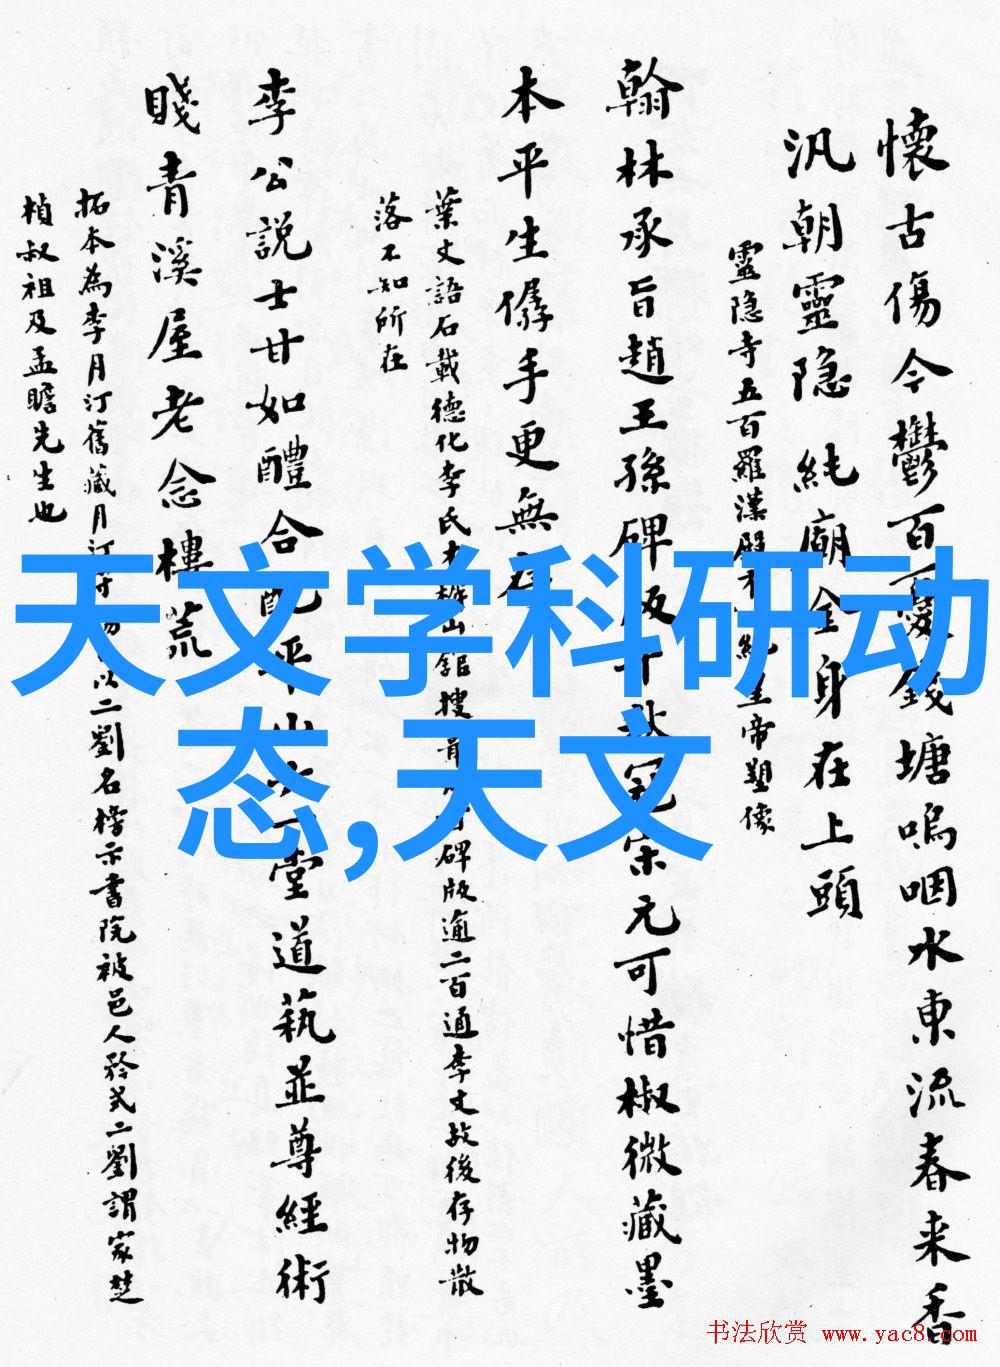 懷古傷今鬱百憂錢塘嗚咽水東流春来香
汎朝靈隐純廟金身在上頭
靈隐寺五百羅漢殿純皇帝塑像
翰林承旨趙王孫碑版千秋冠宋元可惜椒微藏墨
本平生儔手更無
葉文語石載德化李氏木樨山館搜碑版逾二百通李文故後存物散
落不知所在
李公說士甘如醴合配平山堂道藝並尊經術
賤青溪屋老念樓荒
拓本為李月汀舊藏月汀以二劉名榜示書院被邑人矜式二劉謂家楚
楨叔祖及孟瞻先生也
天文学科研动
态,天文
书法欣赏 www.yac8.com